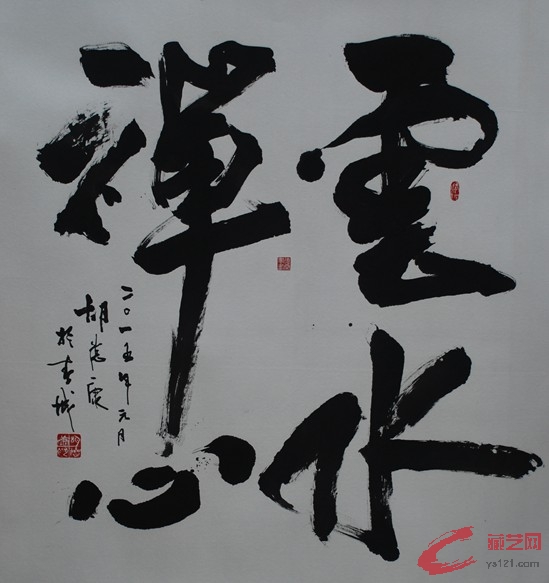 雲水
禪心
二〇一五年元月
胡
於春城
藏艺网
ys121.com